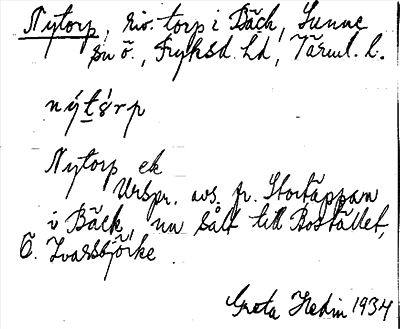 Nytorp, riv. torp i Bäck, Sunne
sn ö., Fryksd. hd, Värml. l.
nýtó̀rp
Nytorp ek
Urspr. avs. fr. Stortäppan
i Bäck, nu sålt till Bostället,
Ö. Ivarsbjörke.
Greta Hedin 1934